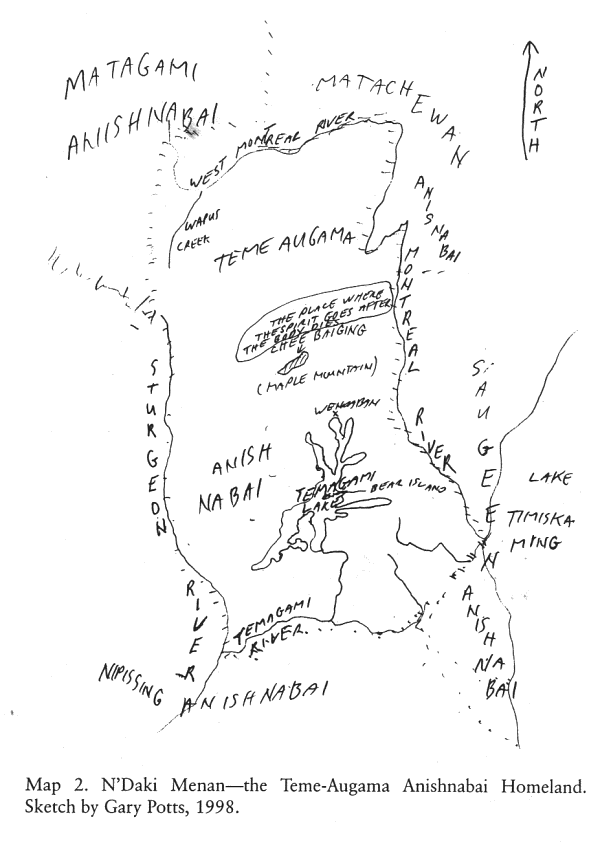 MATAGAMI
ANIISHNABAI
MATACHEWAN
ANISNABAI
NORTH
WEST MONTREAL RIVER
WAPUS
CREEK
TEME AUGAMA
THE PLACE WHERE
THE SPIRIT GOES AFTER
THE BODY DIES
CHEE BAIGING
(MAPLE MOUNTAIN)
MONTREAL
RIVER
STURGEON
RIVER
SAUGEEN
ANISHNABAI
LAKE
TIMISKA
MING
ANISH
NABAI
TEMAGAMI
LAKE
BEAR ISLAND
TEMAGAMI
RIVER
NIPISSING
ANISHNABAI
Map 2. N'Daki Menan—the Teme-Augama Anishnabai Homeland.
Sketch by Gary Potts, 1998.